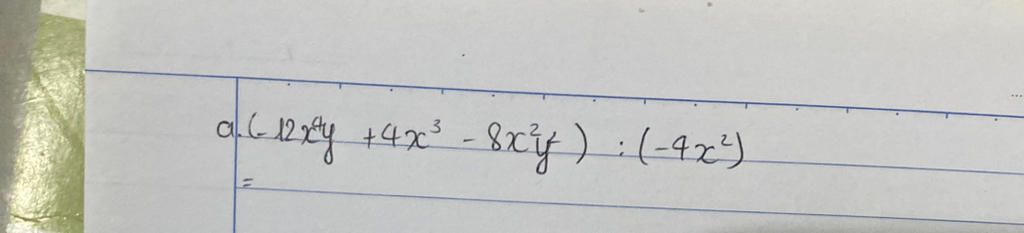 a. (-12x⁴y + 4x³ - 8x²y²) : (-4x²)
=